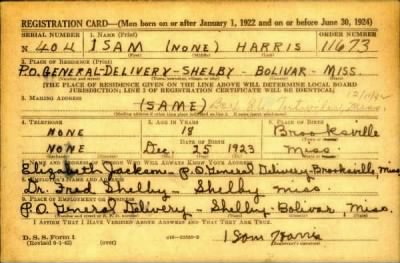 REGISTRATION CARD—(Men born on or after January 1, 1922 and on or before June 30, 1924)
SERIAL NUMBER 1. NAME (Print) ORDER NUMBER
N 404 1 SAM (NONE) HARRIS 11673
2. PLACE OF RESIDENCE (Print)
P.O. GENERAL-DELIVERY-SHELBY- BOLIVAR- MISS.
[THE PLACE OF RESIDENCE GIVEN ON THE LINE ABOVE WILL DETERMINE LOCAL BOARD
JURISDICTION; LINE 2 OF REGISTRATION CERTIFICATE WILL BE IDENTICAL]
3. MAILING ADDRESS
(SAME) Box Miss.
4. TELEPHONE 5. AGE IN YEARS 6. PLACE OF BIRTH
NONE 18 Brooksville
DATE OF BIRTH
NONE Dec. 25 1923 Miss.
7. NAME AND ADDRESS OF PERSON WHO WILL ALWAYS KNOW YOUR ADDRESS
Elizabeth Jackson- P.O General Delivery-Brooksville, Miss
8. EMPLOYER'S NAME AND ADDRESS
Dr. Fred Shelby - Shelby Miss.
9. PLACE OF EMPLOYMENT OR BUSINESS
P.O. General Delivery - Shelby- Bolivar, Miss.
I AFFIRM THAT I HAVE VERIFIED ABOVE ANSWERS AND THAT THEY ARE TRUE.
D. S. S. Form 1
(Revised 6-1-42)
1 Sam Harris